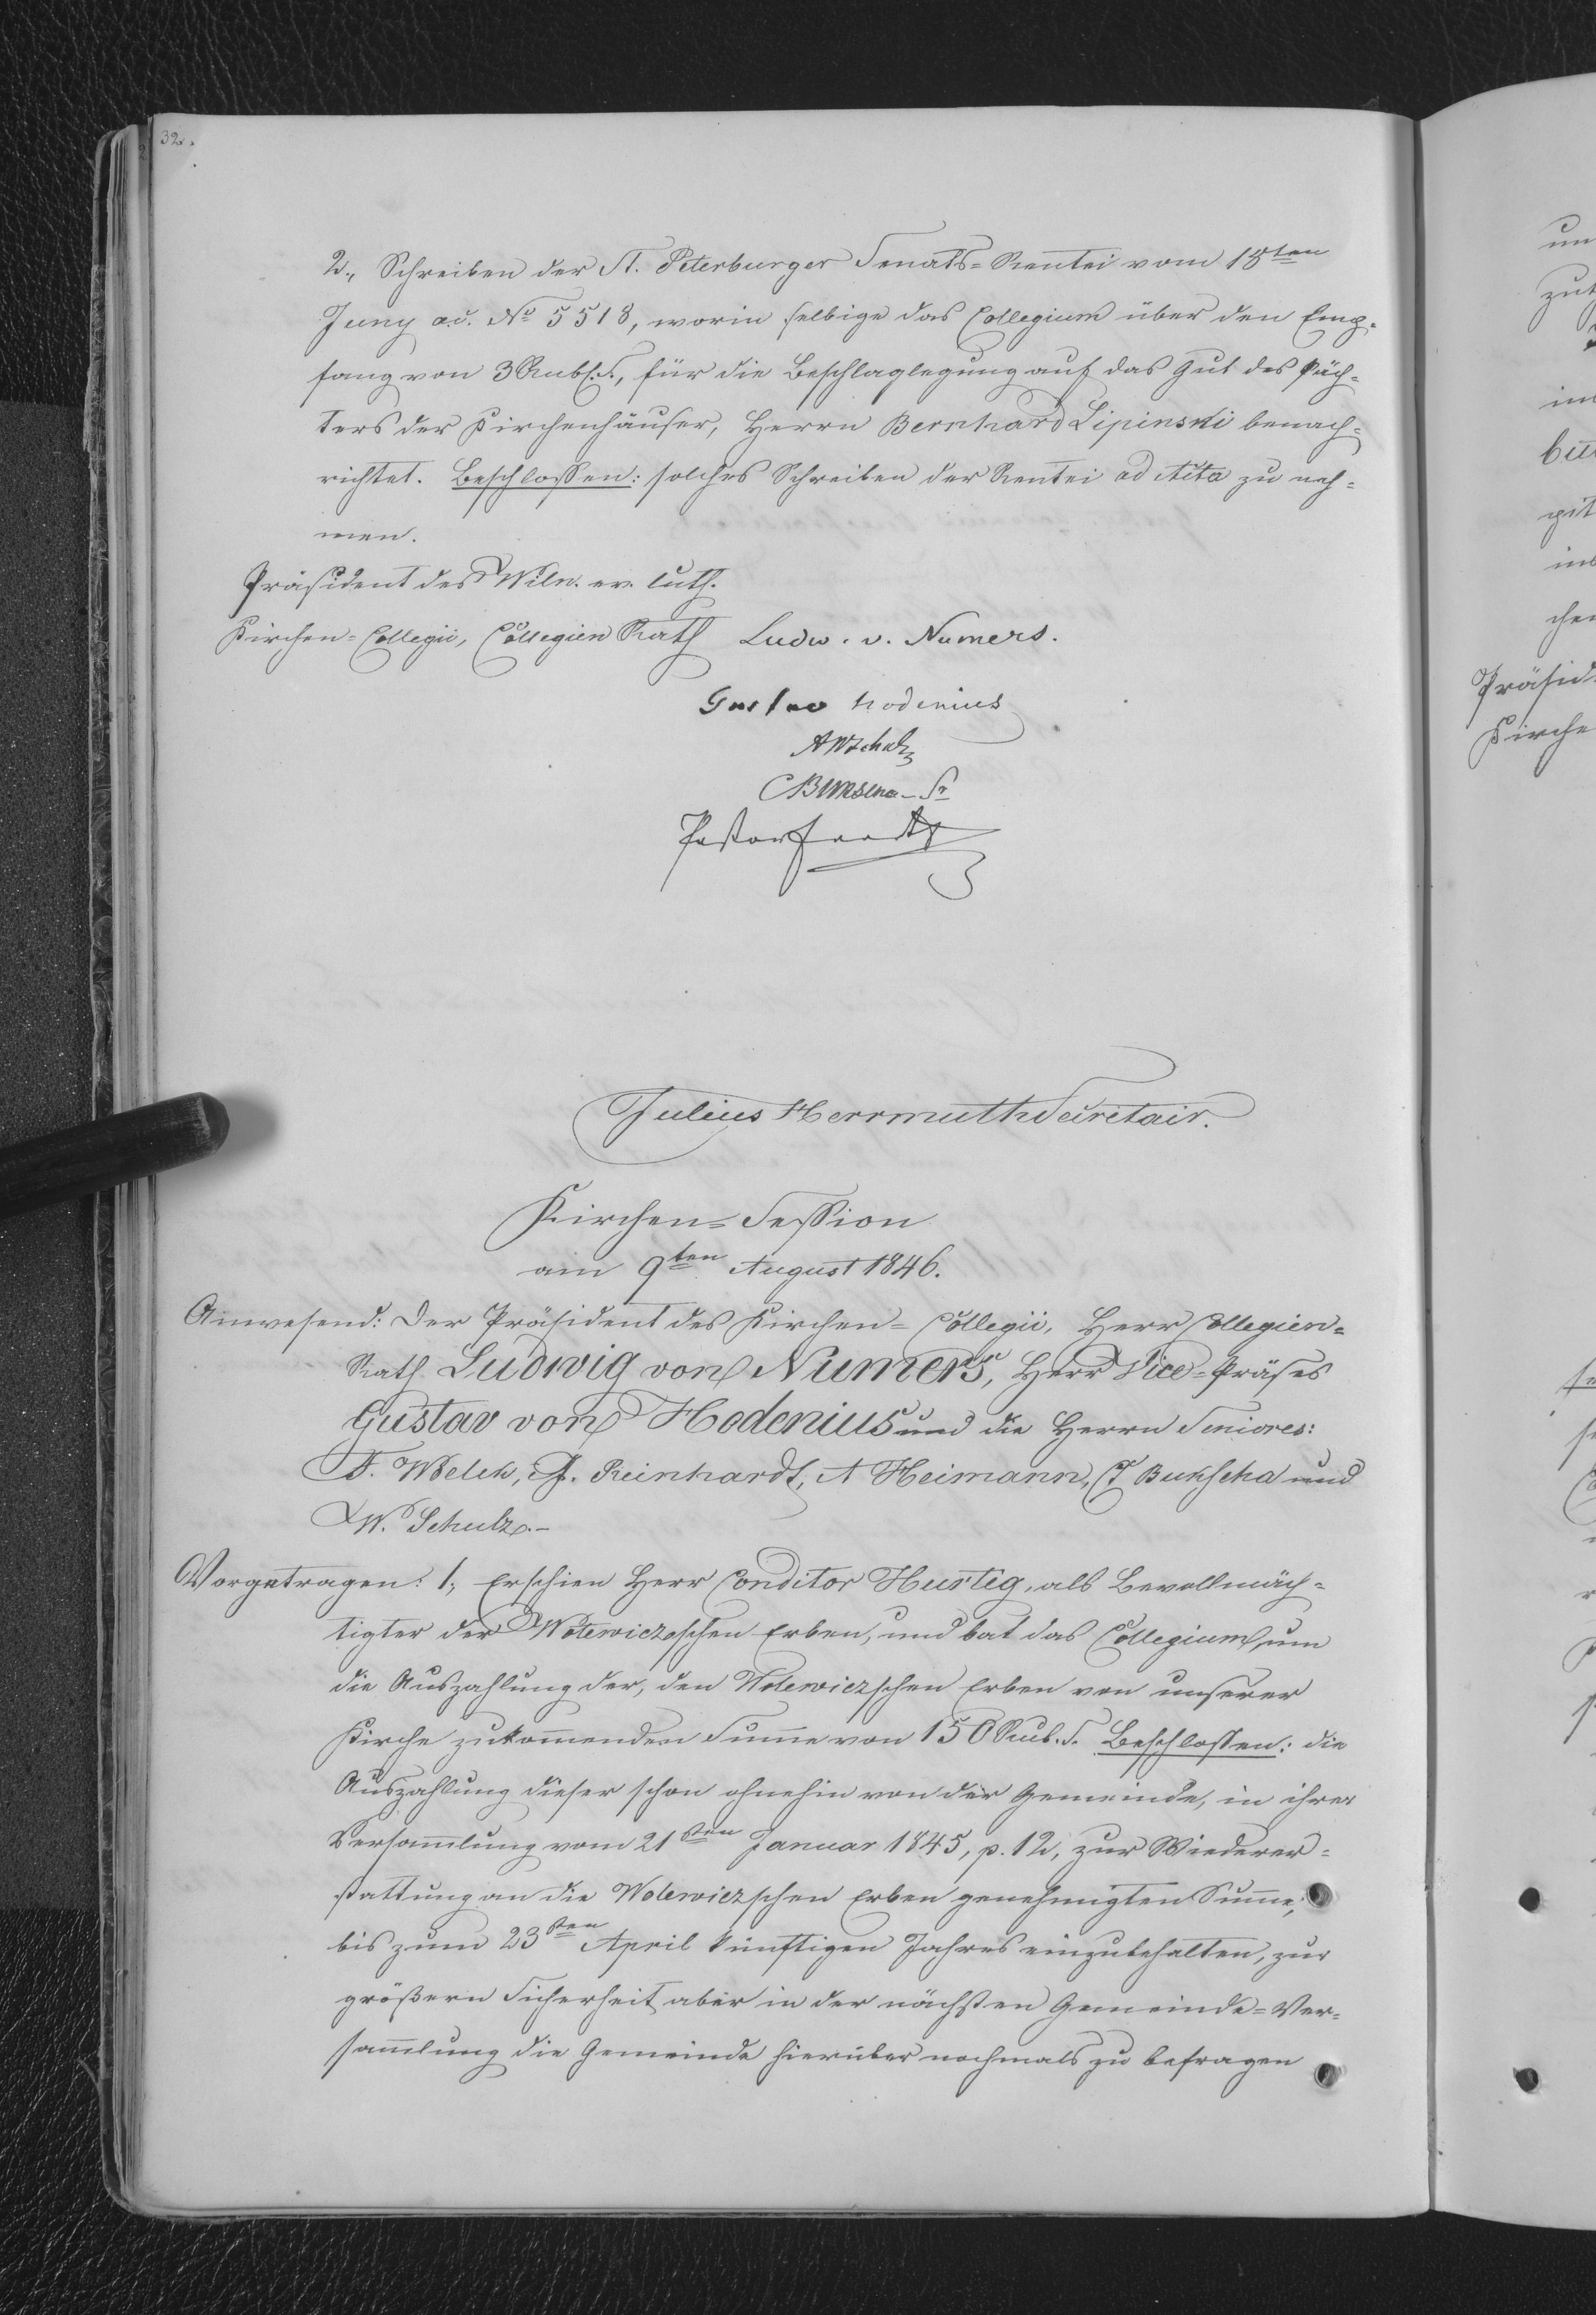 32.
2., Schreiben der St. Peterburger Senats-Rentei vom 18ten
Juny a.c. No 5518, worin selbige das Collegium über den Emp-
fang von 3 Rub. S., für die Beschlaglegung auf das Gut des Päch-
ters der Kirchenhäuser, Herrn Bernhard Lipinski benach-
richtet. Beschlossen: solches Schreiben der Rentei ad Acta zu neh-
men.
Präsident des Wiln. ev. luth.
Kirchen-Collegii, Collegien Rath Ludw. v. Numers.
Gustav Hodenius
AWSchulz
Pastor
Julius Herrmuth Secretair.
Kirchen-Session
am 9ten August 1846.
Anwesend: Der Präsident des Kirchen-Collegii, Herr Collegien-
Rath Ludwig von Numers, Herr Vice-Präses
Gustav von Hodenius und die Herrn Seniores:
F. Welck, J. Reinhardt, A Heimann, CJ Bukscha und
W. Schulz.-
Vorgetragen: 1., Erschien Herr Conditor Hurtig, als Bevollmäch-
tigter der Wolewiczschen Erben, und bat das Collegium, um
die Auszahlung der, den Wolewiczschen Erben von unserer
Kirche zukommenden Summe von 150 Rub. S. Beschlossen: die
Auszahlung dieser schon ohnehin von der Gemeinde, in ihrer
Versammlung vom 21sten Januar 1845, p. 12, zur Wiederer-
stattung an die Wolewiczschen Erben genehmigten Summe,
bis zum 23sten April künftigen Jahres einzubehalten, zur
größern Sicherheit aber in der nächsten Gemeinde-Ver-
sammlung die Gemeinde hierüber nochmals zu befragen